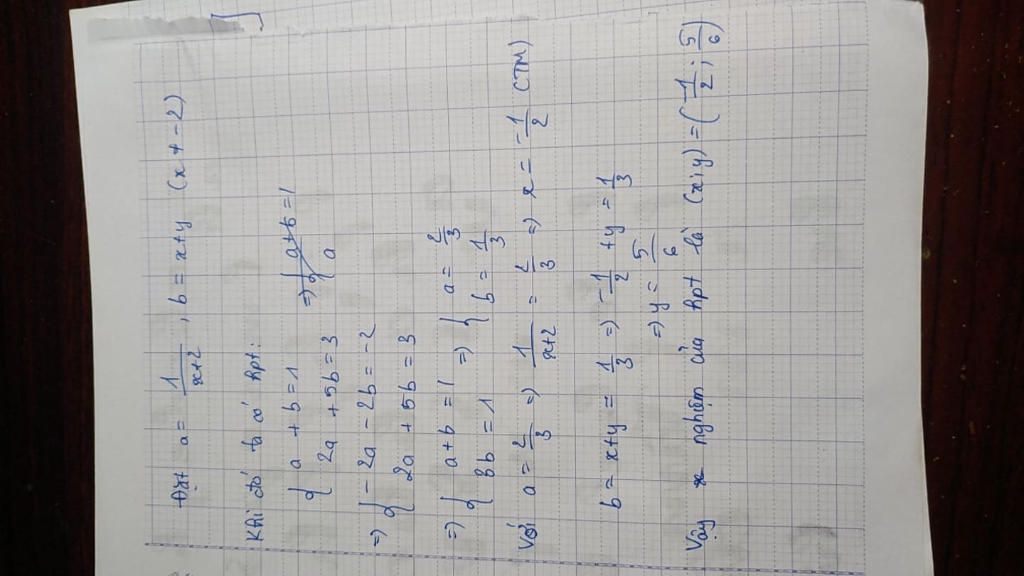 Đặt a = 1/(x+2) , b = x+y (x ≠ -2)
Khi đó ta có hpt:
{ a + b = 1 => { a + b = 1
{ 2a + 5b = 3 { a
=> { -2a - 2b = -2
{ 2a + 5b = 3
=> { a + b = 1 => { a = 2/3
{ 3b = 1 { b = 1/3
Với a = 2/3 => 1/(x+2) = 2/3 => x = -1/2 (TM)
b = x+y = 1/3 => -1/2 + y = 1/3
=> y = 5/6
Vậy nghiệm của hpt là (x;y) = (-1/2 ; 5/6)